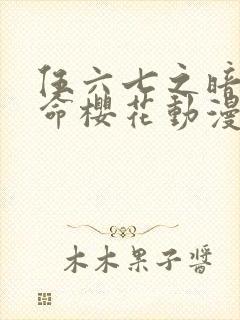 伍六七之暗
命櫻花動漫
木木果子醬